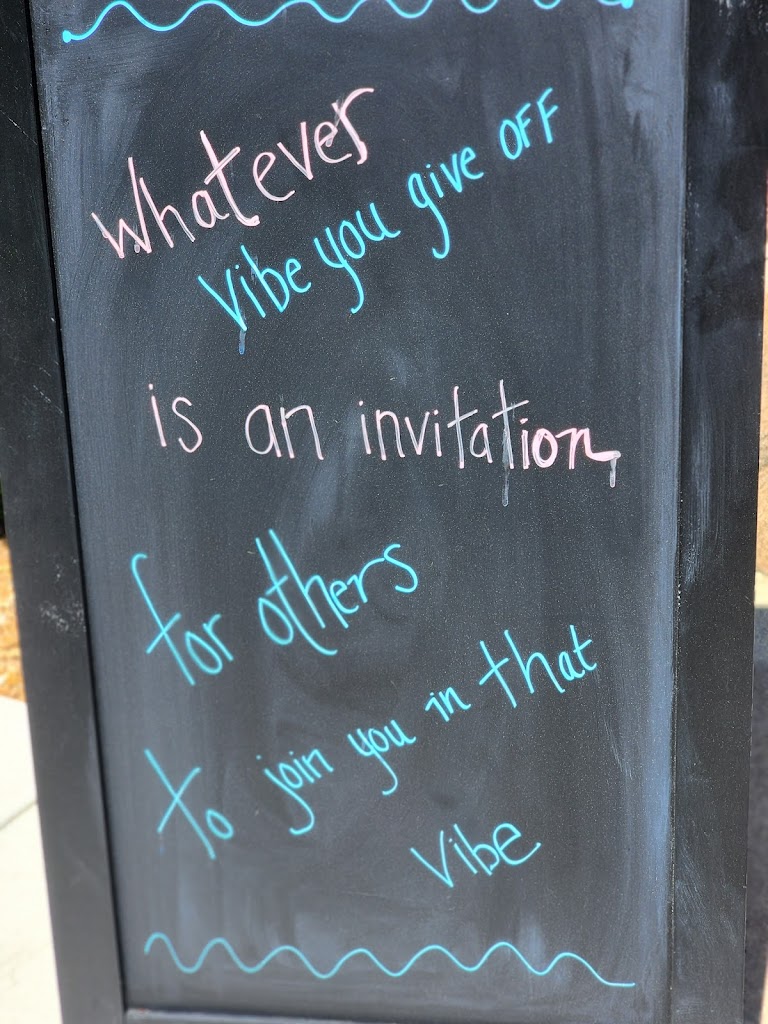 whatever
vibe you give OFF
is an invitation
for others
to join you in that
vibe